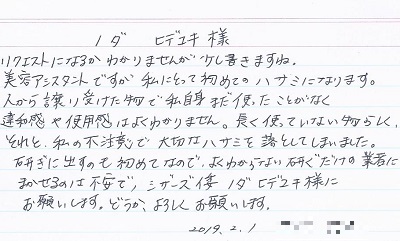 ノダ ヒデユキ様
リクエストになるかわかりませんが少し書きますね。
美容アシスタントですが私にとって初めてのハサミになります。
人から譲り受けた物で私自身まだ使ったことがなく
違和感や使用感はよくわかりません。長く使っていない物らしく、
それと、私の不注意で大切なハサミを落としてしまいました。
研ぎに出すのも初めてなので、よくわからない研ぐだけの業者に
まかせるのは不安で、シザーズ倭 ノダ ヒデユキ様に
お願いします。どうか、よろしくお願いします。
2019.2.1